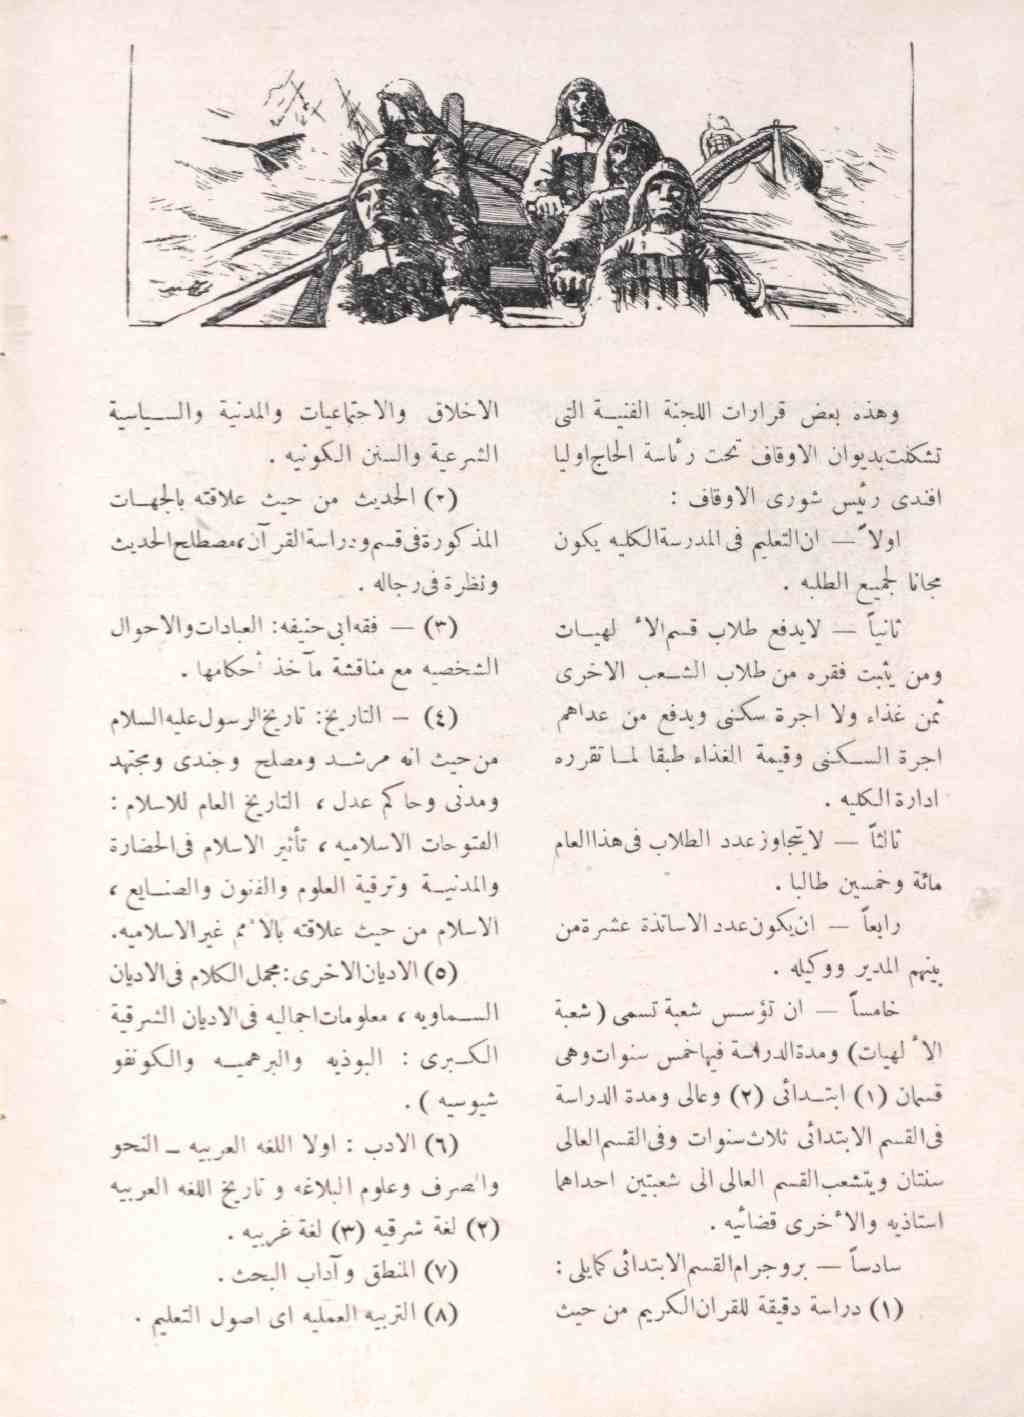 وهذه بعض قرارات اللجنة الفنيــة التى
تشكلت بديوان الاوقاف تحت رئاسة الحاج اوليا
افندى رئيس شورى الاوقاف :
اولاً — ان التعليم فى المدرسة الكليه يكون
مجانا لجميع الطلبه .
ثانياً — لايدفع طلاب قسم الأ لهيــات
ومن يثبت فقره من طلاب الشــعب الاخرى
ثمن غذاء ولا اجرة سكنى ويدفع من عداهم
اجرة الســكنى وقيمة الغذاء طبقا لمــا تقرره
ادارة الكليه .
ثالثاً — لا يتجاوز عدد الطلاب فى هذا العام
مائة وخمسين طالبا .
رابعاً — ان يكون عدد الاساتذة عشرة من
بينهم المدير ووكيله .
خامساً — ان تؤسس شعبة تسمى ( شعبة
الأ لهيات) ومدة الدراسة فيها خمس سنوات وهى
قسمان (١) ابتــدائى (٢) وعالى ومدة الدراسة
فى القسم الابتدائى ثلاث سنوات وفى القسم العالى
سنتان ويتشعب القسم العالى الى شعبتين احداهما
استاذيه والأخرى قضائيه .
سادساً — بروجرام القسم الابتدائى كمايلى :
(١) دراسة دقيقة للقران الكريم من حيث
الاخلاق والاجتماعيات والمدنية والســياسية
الشرعية والسنن الكونيه .
(٢) الحديث من حيث علاقته بالجهــات
المذكورة فى قسم ودراسة القرآن، مصطلح الحديث
ونظرة فى رجاله .
(٣) — فقه ابى حنيفه : العبادات والاحوال
الشخصيه مع مناقشة مآخذ أحكامها .
(٤) – التاريخ : تاريخ الرسول عليه السلام
من حيث انه مرشــد ومصلح وجندى ومجتهد
ومدنى وحاكم عدل ، التاريخ العام للاسلام :
الفتوحات الاسلاميه ، تأثير الاسلام فى الحضارة
والمدنيــة وترقية العلوم والفنون والصنــايع ،
الاسلام من حيث علاقته بالأمم غير الاسلاميه.
(٥) الاديان الاخرى : مجمل الكلام فى الاديان
الســماويه ، معلومات اجماليه فى الاديان الشرقية
الكــبرى : البوذيه والبرهميــه والكونفو
شيوسيه ) .
(٦) الادب : اولا اللغه العربيه ــ النحو
والصرف وعلوم البلاغه و تاريخ اللغه العربيه
(٢) لغة شرقيه (٣) لغة غربيه .
(٧) المنطق وآداب البحث .
(٨) التربيه العمليه اى اصول التعليم .